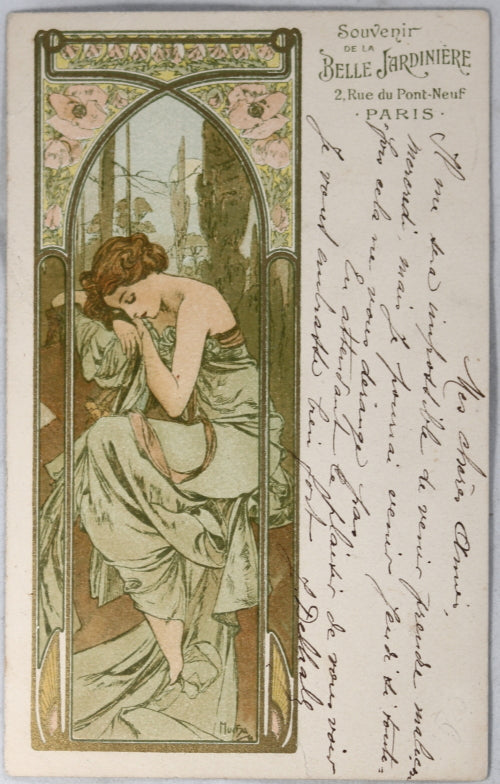 Souvenir
DE LA
BELLE JARDINIÈRE
2, Rue du Pont-Neuf
· PARIS ·
Mes chères Amies,
Il me sera impossible de venir prendre ma leçon
mercredi, mais je pourrai venir jeudi si toute=
fois cela ne vous dérange pas
En attendant le plaisir de vous voir
Je vous embrasse bien fort
Mucha